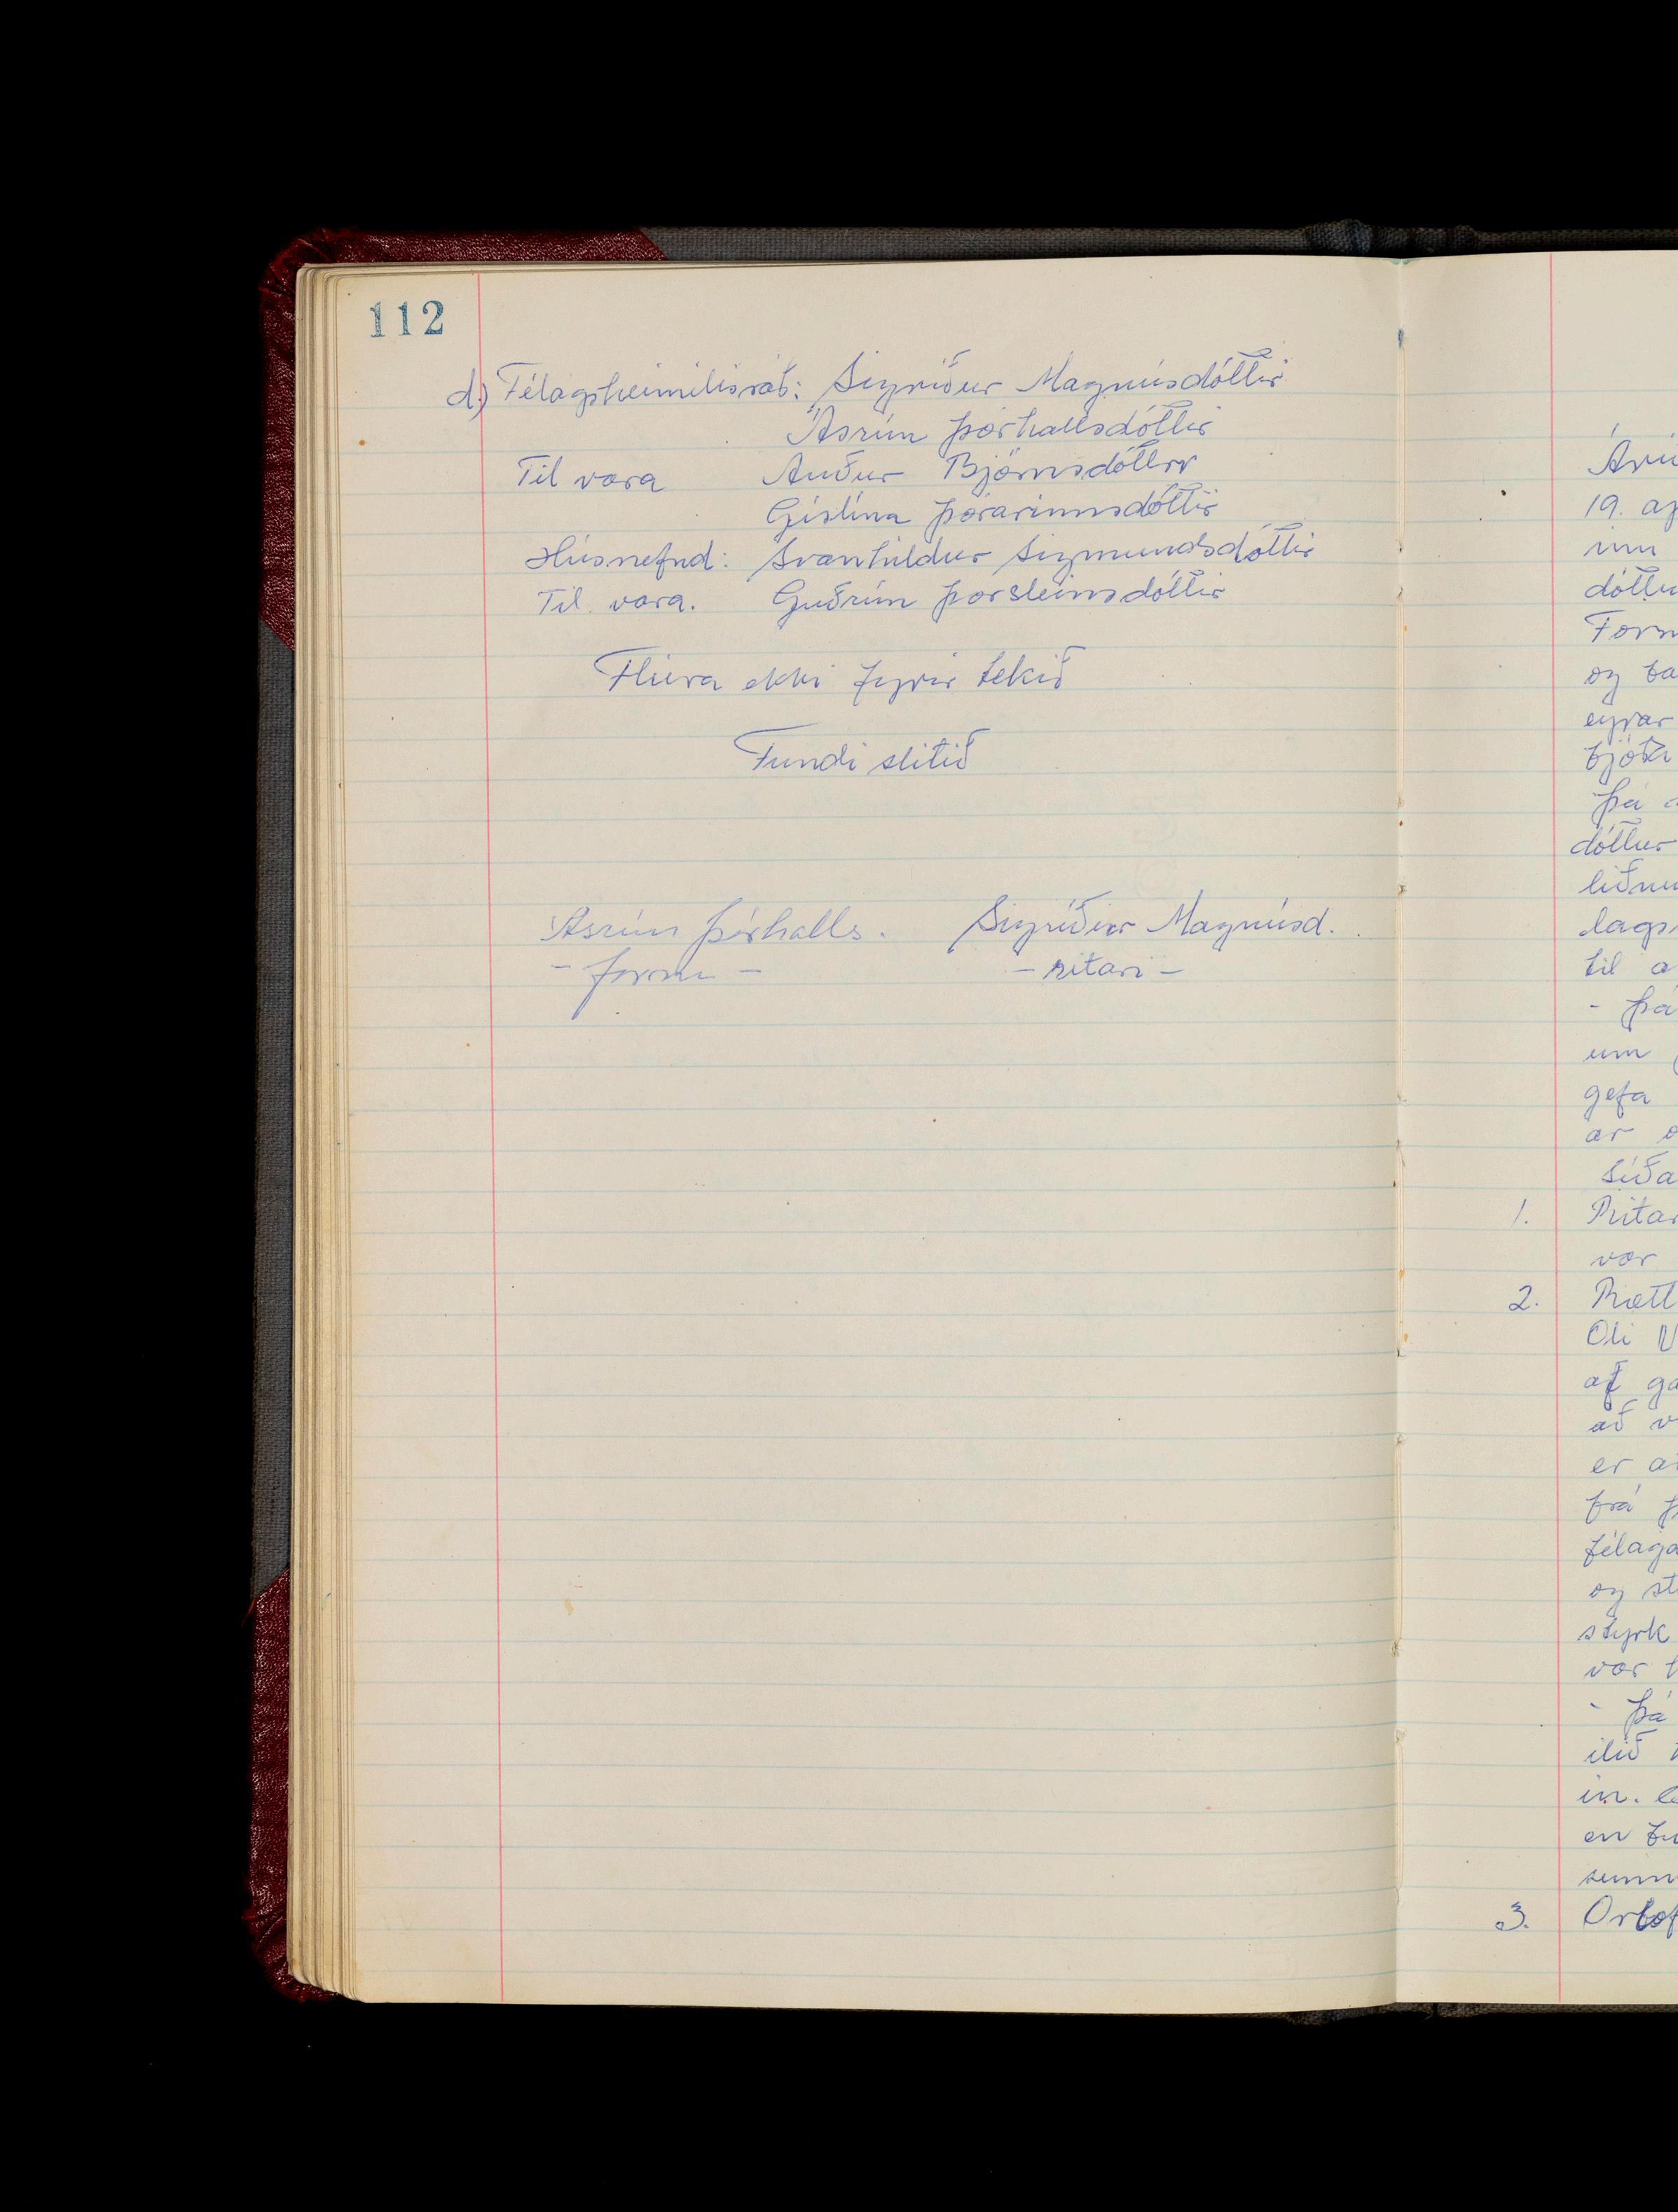 112
d.) Félagsheimilisráð: Sigríður Magnúsdóttir
Ásrún Þórhallsdóttir
Til vara Auður Björnsdóttir
Gíslína Þórarinnsdóttir
Húsnefnd: Svanhildur Sigmundsdóttir
Til vara. Guðrún Þorsteinsdóttir
Fleira ekki fyrir tekið
Fundi slitið
Ásrún Þórhalls. Sigríður Magnúsd.
- form - - ritari -
19. ap
dóttu
Form
og
eyrar
Þá
dóttur
liðnu
lags
til a
- Þá
um
gefa
ar
Síða
1. Ritar
var
2. Rætt
Óli
af ga
að v
er
frá
félaga
og st
styrk
var
- Þá
ilið
in.
en
3. Orlof